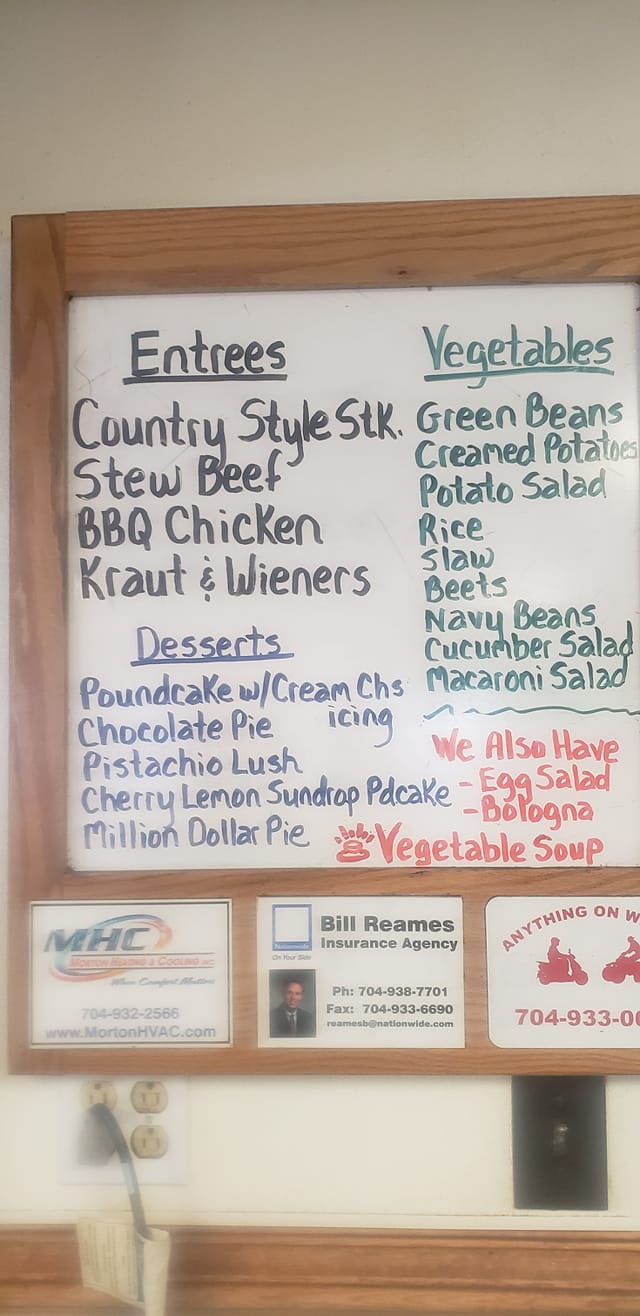 Entrees
Country Style Stk.
Stew Beef
BBQ Chicken
Kraut & Wieners
Desserts
Poundcake w/Cream Chs
icing
Chocolate Pie
Pistachio Lush
Cherry Lemon Sundrop Pdcake
Million Dollar Pie
Vegetables
Green Beans
Creamed Potatoes
Potato Salad
Rice
Slaw
Beets
Navy Beans
Cucumber Salad
Macaroni Salad
We Also Have
- Egg Salad
- Bologna
Vegetable Soup
MHC
MORTON HEATING & COOLING INC
When Comfort Matters
704-932-2566
www.MortonHVAC.com
Nationwide
On Your Side
Bill Reames
Insurance Agency
Ph: 704-938-7701
Fax: 704-933-6690
reamesb@nationwide.com
ANYTHING ON W
704-933-00